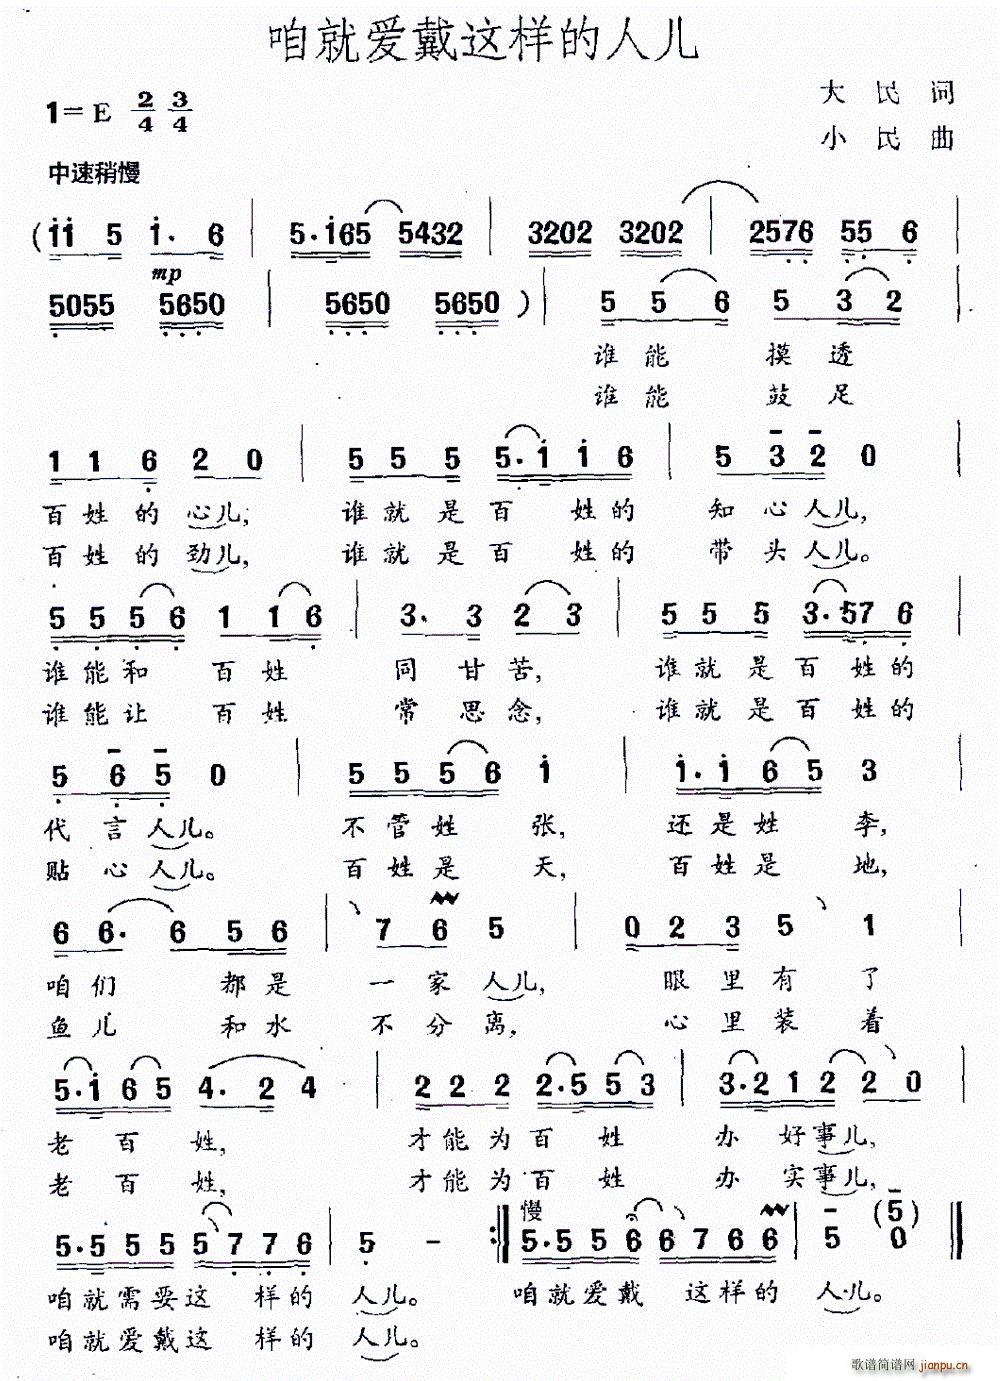 咱就爱戴这样的人儿
1=E 2/4 3/4
大民词
小民曲
中速稍慢
(i i 5 i· 6 | 5·i65 5432 | 3202 3202 | 2576 55 6 |
mp
5055 5650 | 5650 5650 ) | 5 5 6 5 3 2 |
谁能 摸透
谁能 鼓足
1 1 6 2 0 | 5 5 5 5·i i 6 | 5 3 2 0 |
百姓的心儿; 谁就是百 姓的 知心人儿,
百姓的劲儿, 谁就是百 姓的 带头人儿。
5 5 5 6 1 1 6 | 3· 3 2 3 | 5 5 5 3·57 6 |
谁能和 百姓 同甘苦, 谁就是百 姓的
谁能让 百姓 常思念, 谁就是百 姓的
5 6 5 0 | 5 5 5 6 i | i·i 6 5 3 |
代言人儿。 不管姓 张, 还是姓 李,
贴心人儿。 百姓是 天, 百姓是 地,
6 6· 6 5 6 | 7 6 5 | 0 2 3 5 1 |
咱们 都是 一家人儿, 眼里有了
鱼儿 和水 不分离, 心里装着
5·i 6 5 4· 2 4 | 2 2 2 2·5 5 3 | 3·2 1 2 2 0 |
老百姓, 才能为百 姓 办 好事儿,
老百姓, 才能为百 姓 办 实事儿,
慢
5·5 5 5 5 7 7 6 | 5 - :‖ 5·5 5 6 6 7 6 6 | 5 (5) 0 ‖
咱就需要这 样的 人儿。 咱就爱戴 这样的 人儿。
咱就爱戴这 样的 人儿。
歌谱简谱网 jianpu.cn